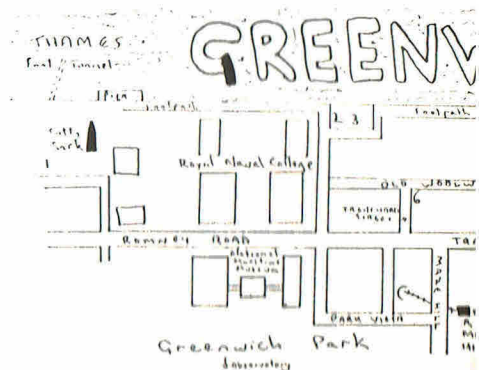 GREENW
THAMES
Foot Tunnel
Pier
Footpath
Footpath
2 3
Cutty
Sark
1
Royal Naval College
OLD WOOLW
6
TRAFALGAR
ROMNEY ROAD
TRA
National
Maritime
Museum
MAZE HILL
PARK VISTA
Greenwich Park
Observatory